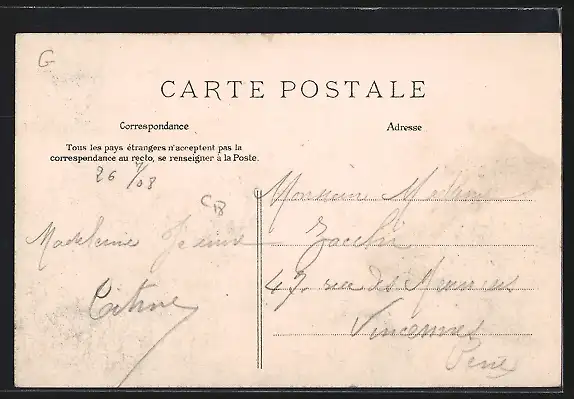 G
CARTE POSTALE
Correspondance
Adresse
Tous les pays étrangers n'acceptent pas la
correspondance au recto, se renseigner à la Poste.
26 7/08
CB
Madeleine Jeanne
Monsieur
47 rue des
Vincennes